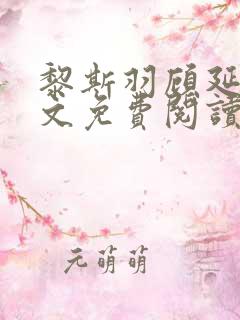 黎斯羽顾延
文免費閱讀
元萌萌